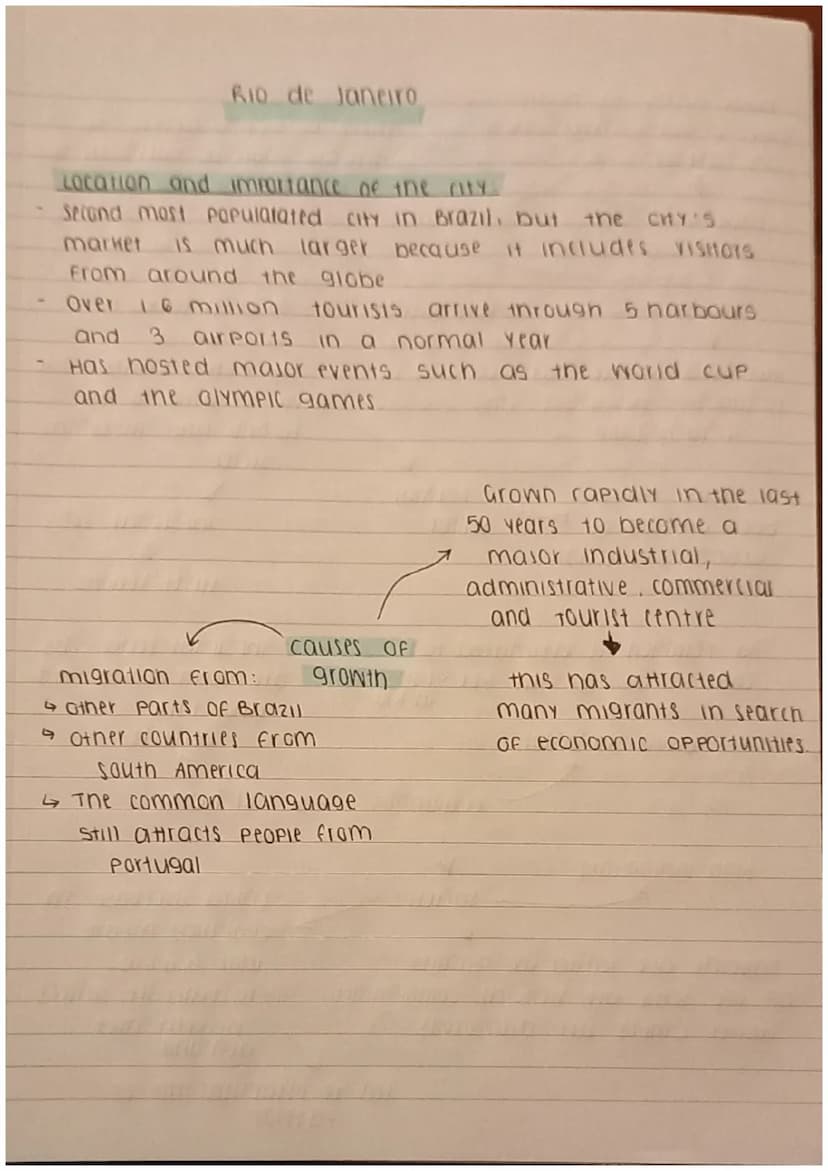 Rio de Janeiro
Location and importance of the city
- Second most populatated city in Brazil, but the city's
market is much larger because it includes visitors
from around the globe
- Over 1.6 million tourists arrive through 5 harbours
and 3 airports in a normal year
- Has hosted major events such as the World Cup
and the Olympic games
Grown rapidly in the last
50 years to become a
major industrial,
administrative, commercial
and Tourist centre
↓
this has attracted
many migrants in search
of economic opportunities.
causes of
growth
migration from:
↳ other parts of Brazil
↳ other countries from
South America
↳ The common language
still attracts people from
Portugal